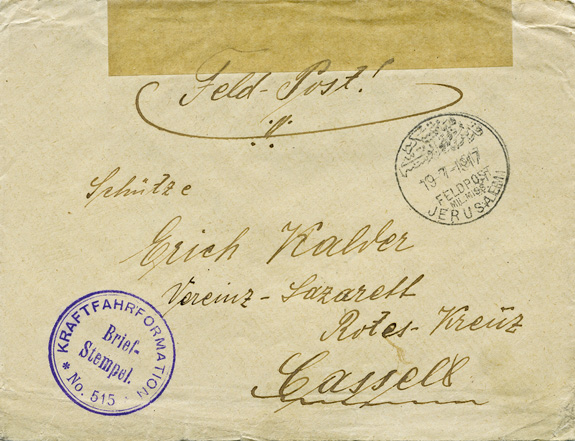 Feld-Post!
19-7-1917
FELDPOST
MIL. MISS.
JERUSALEM
Schütze
Erich Kalder
Vereinz-Lazarett
Rotes-Kreüz
Cassell
KRAFTFAHRFORMATION
Brief-
Stempel.
* No. 515 ·